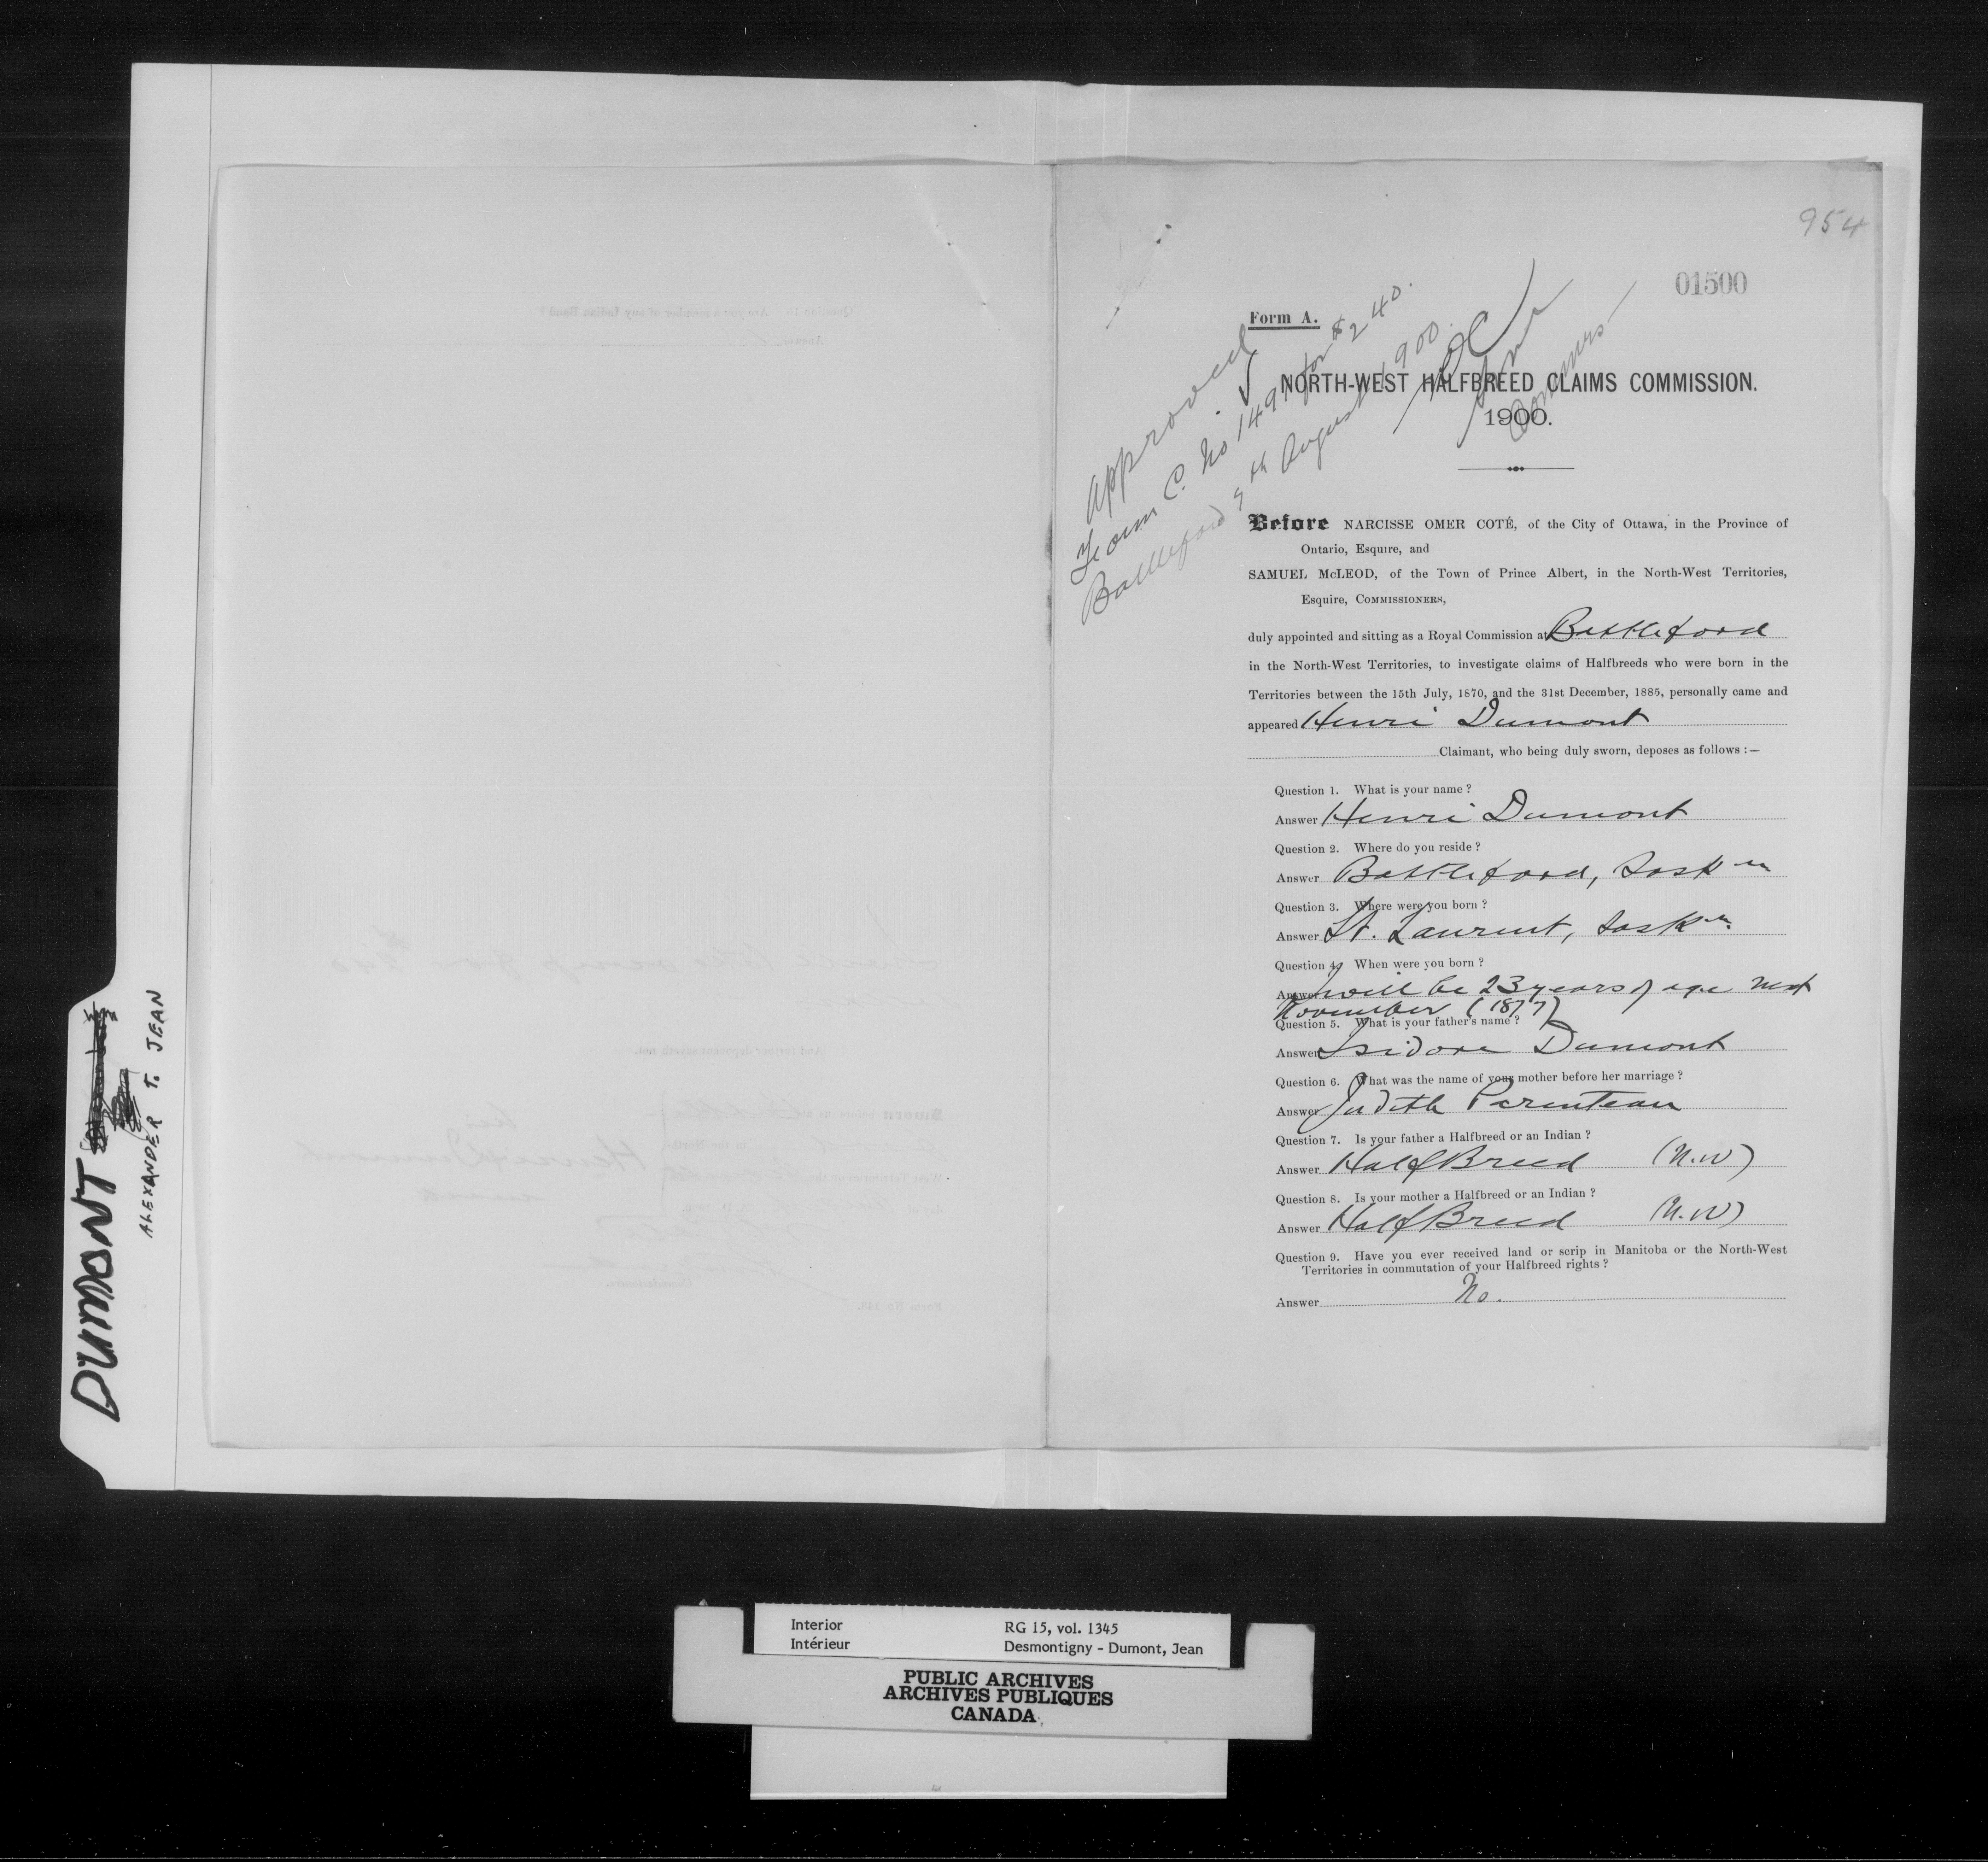 954
01500
Form A.
Approved
Form C. No 1497 for $240.
Battleford 9th August 1900.
NORTH-WEST HALFBREED CLAIMS COMMISSION.
1900.
Before NARCISSE OMER COTÉ, of the City of Ottawa, in the Province of
Ontario, Esquire, and
SAMUEL McLEOD, of the Town of Prince Albert, in the North-West Territories,
Esquire, COMMISSIONERS,
duly appointed and sitting as a Royal Commission at Battleford
in the North-West Territories, to investigate claims of Halfbreeds who were born in the
Territories between the 15th July, 1870, and the 31st December, 1885, personally came and
appeared Henri Dumont
Claimant, who being duly sworn, deposes as follows :—
Question 1. What is your name ?
Answer Henri Dumont
Question 2. Where do you reside ?
Answer Battleford, Saskn
Question 3. Where were you born ?
Answer St. Laurent, Saskn.
Question 4. When were you born ?
Answer I will be 23 years of age next
November (1877)
Question 5. What is your father's name ?
Answer Isidore Dumont
Question 6. What was the name of your mother before her marriage ?
Answer Judith Parenteau
Question 7. Is your father a Halfbreed or an Indian ?
Answer HalfBreed (N.W)
Question 8. Is your mother a Halfbreed or an Indian ?
Answer HalfBreed (N.W)
Question 9. Have you ever received land or scrip in Manitoba or the North-West
Territories in commutation of your Halfbreed rights ?
Answer No.
DUMONT
ALEXANDER T. JEAN
Interior RG 15, vol. 1345
Intérieur Desmontigny - Dumont, Jean
PUBLIC ARCHIVES
ARCHIVES PUBLIQUES
CANADA